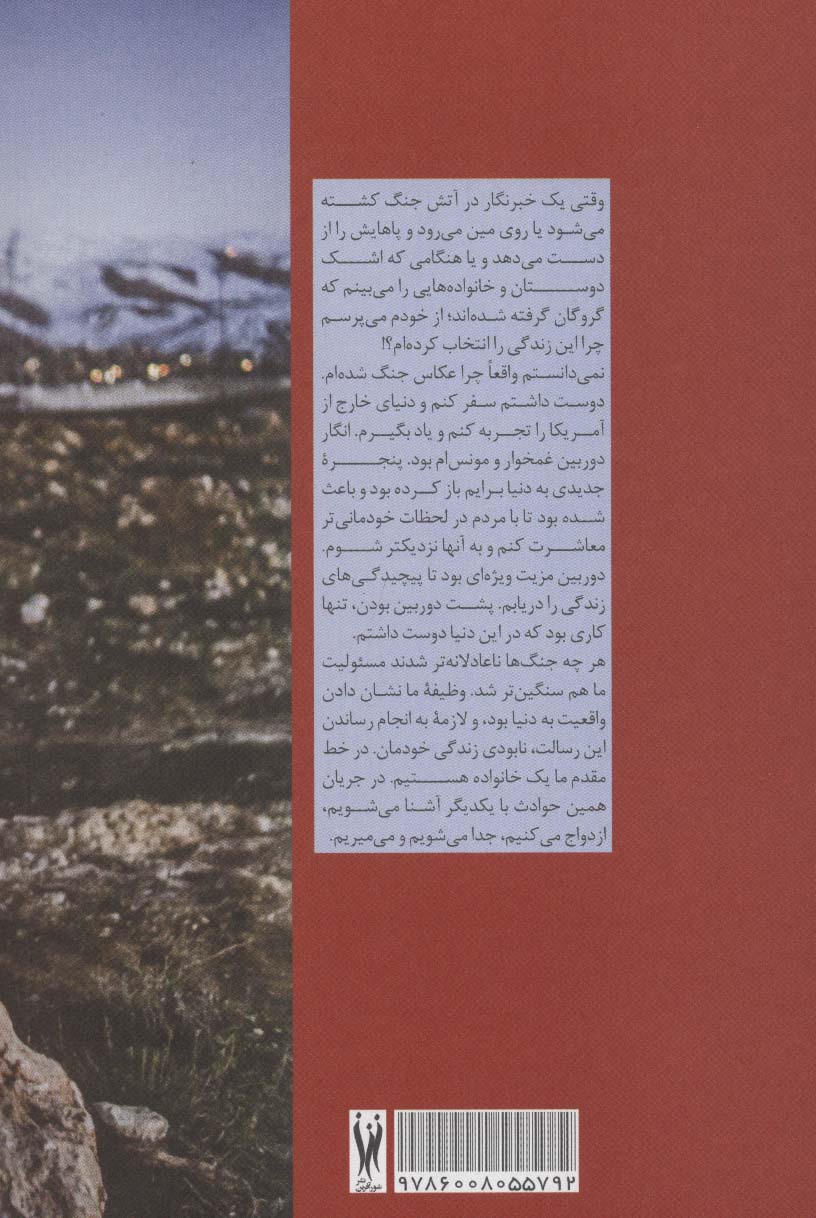 وقتی یک خبرنگار در آتش جنگ کشته
می‌شود یا روی مین می‌رود و پاهایش را از
دست می‌دهد و یا هنگامی که اشک
دوستان و خانواده‌هایی را می‌بینم که
گروگان گرفته شده‌اند؛ از خودم می‌پرسم
چرا این زندگی را انتخاب کرده‌ام؟!
نمی‌دانستم واقعاً چرا عکاس جنگ شده‌ام.
دوست داشتم سفر کنم و دنیای خارج از
آمریکا را تجربه کنم و یاد بگیرم. انگار
دوربین غمخوار و مونس‌ام بود. پنجرهٔ
جدیدی به دنیا برایم باز کرده بود و باعث
شده بود تا با مردم در لحظات خودمانی‌تر
معاشرت کنم و به آنها نزدیکتر شوم.
دوربین مزیت ویژه‌ای بود تا پیچیدگی‌های
زندگی را دریابم. پشت دوربین بودن، تنها
کاری بود که در این دنیا دوست داشتم.
هر چه جنگ‌ها ناعادلانه‌تر شدند مسئولیت
ما هم سنگین‌تر شد. وظیفهٔ ما نشان دادن
واقعیت به دنیا بود، و لازمهٔ به انجام رساندن
این رسالت، نابودی زندگی خودمان. در خط
مقدم ما یک خانواده هستیم. در جریان
همین حوادث با یکدیگر آشنا می‌شویم،
ازدواج می‌کنیم، جدا می‌شویم و می‌میریم.
نشر
شورآفرین
۹۷۸۶۰۰۸۰۵۵۷۹۲